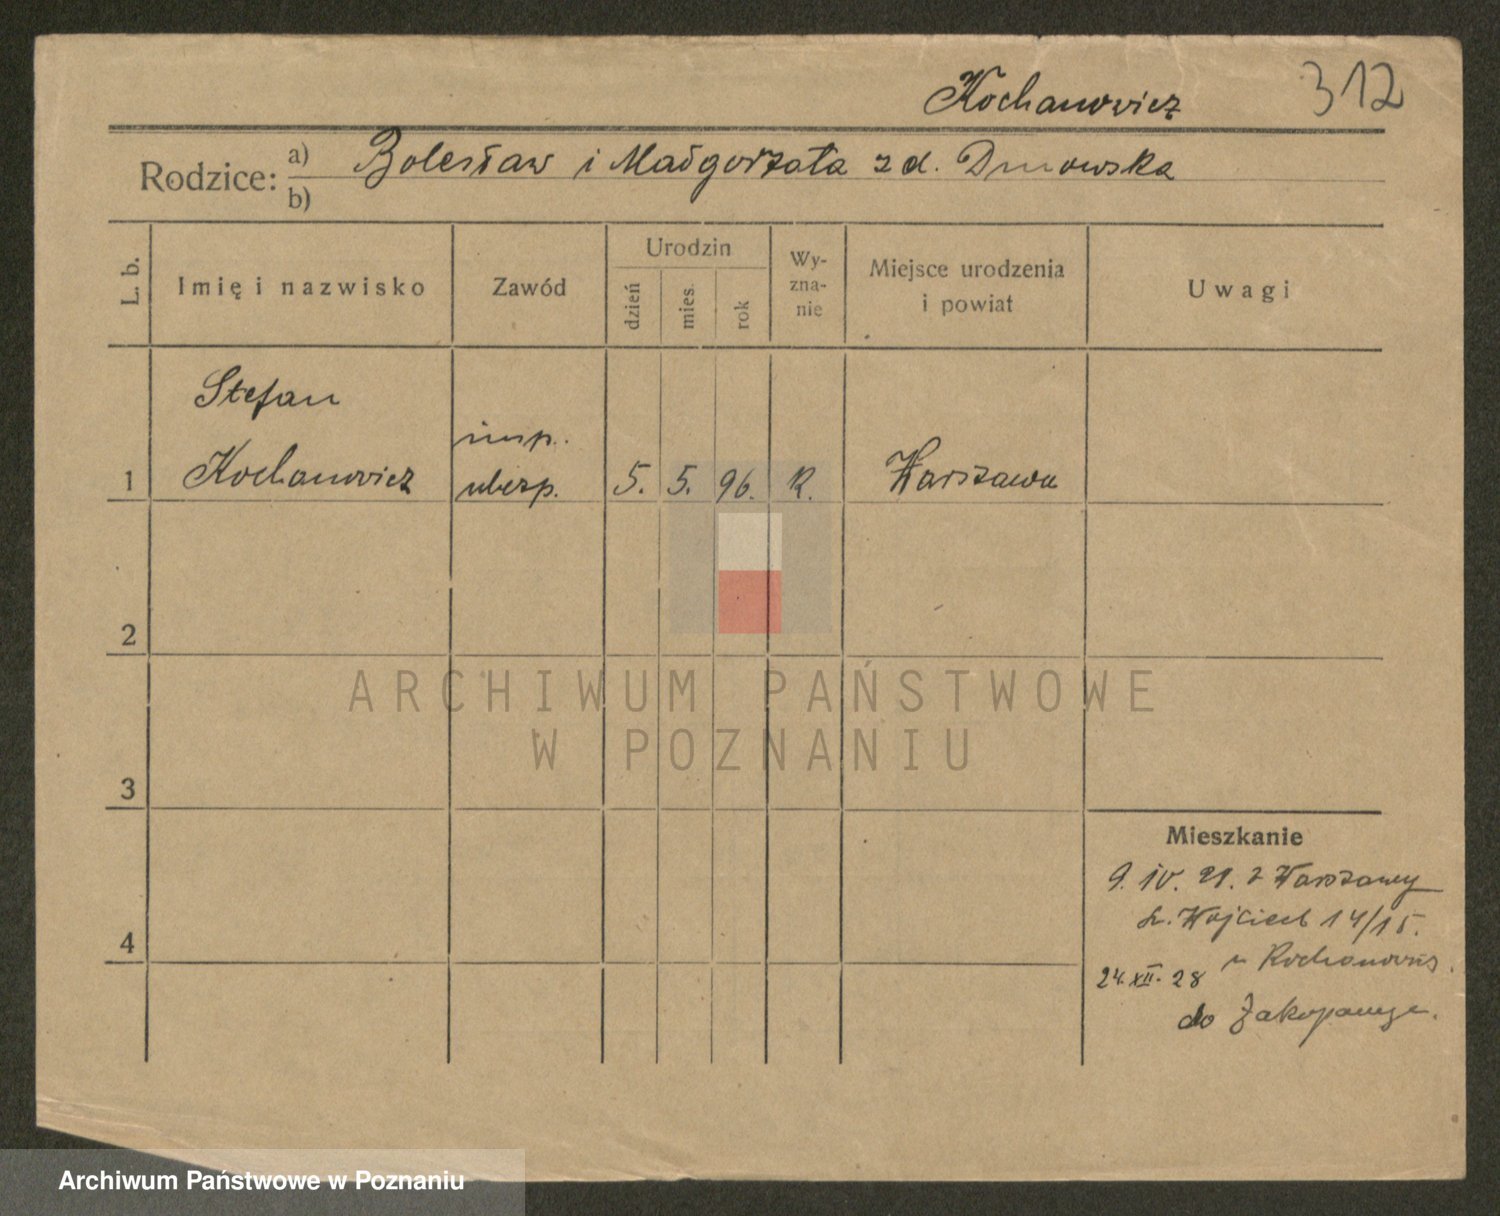 Kochanowicz 312
Rodzice: a) Bolesław i Małgorzata z d. Dmowska
b)
L. b. Imię i nazwisko Zawód Urodzin dzień mies. rok Wy-zna-nie Miejsce urodzenia i powiat Uwagi
Stefan
insp.
1 Kochanowicz ubezp. 5. 5. 96. R. Warszawa
2
ARCHIWUM PAŃSTWOWE
W POZNANIU
3
Mieszkanie
9. IV. 21. z Warszawy
św. Wojciech 14/15.
4
u Kochanowicz.
24. XII. 28
do Zakopanego.
Archiwum Państwowe w Poznaniu